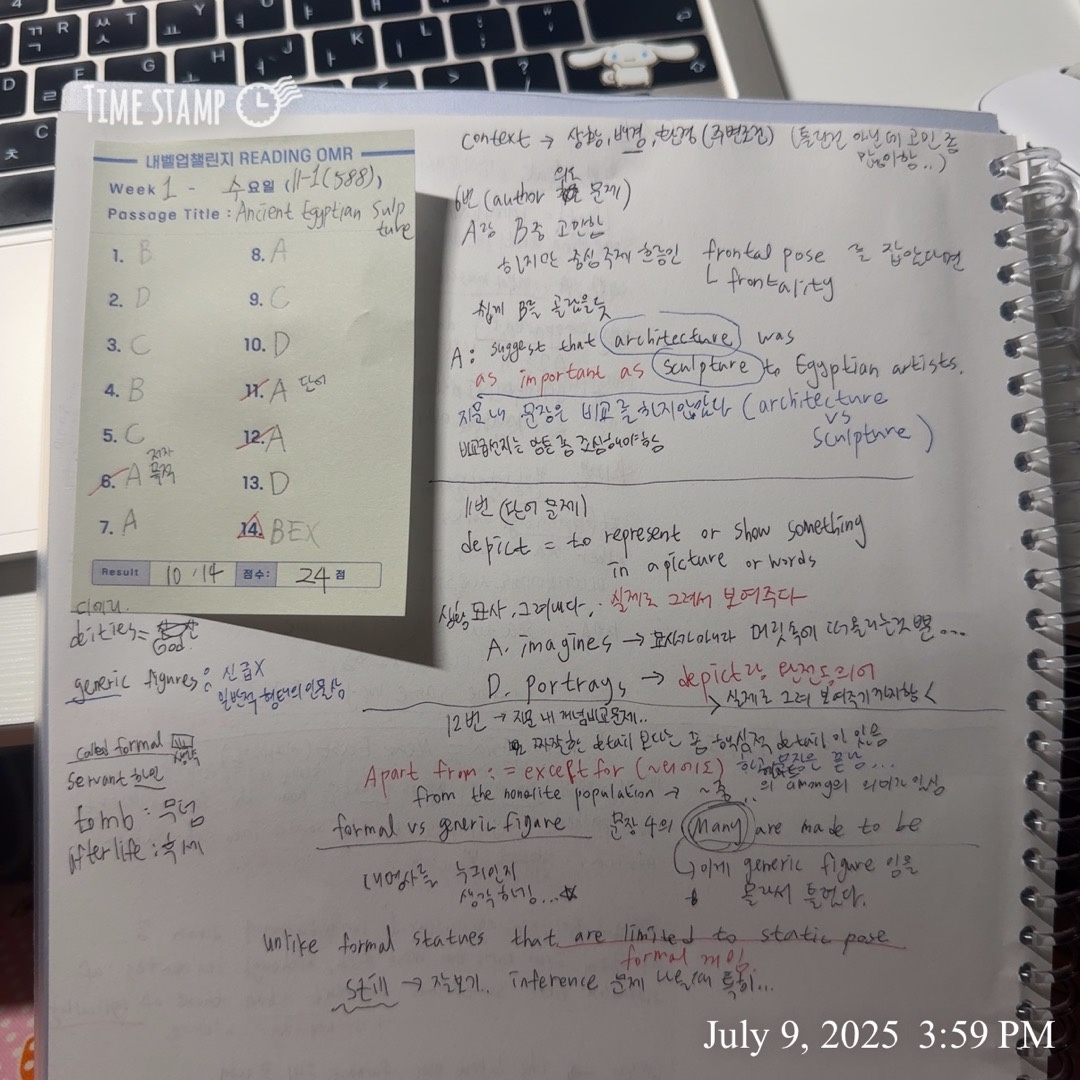 TIME STAMP
내벨업챌린지 READING OMR
Week 1 - 수요일 (11-1(588))
Passage Title : Ancient Egyptian Sulpture
1. B
2. D
3. C
4. B
5. C
6. A 저자 목적
7. A
8. A
9. C
10. D
11. A 단어
12. A
13. D
14. BEX
Result 10 / 14 점수: 24 점
deities = God
generic figures : 신급X
일반적 형태의 인물상
called formal 생략
servant 하인
tomb : 무덤
afterlife : 후세
context → 상황, 배경, 환경 (주변조건) (틀린건 아닌데 고민 좀
많이함..)
6번 (author 의도 문제)
A랑 B중 고민함
하지만 중심주제 흐름인 frontal pose 를 잡았다면
ㄴ frontality
쉽게 B를 골랐을듯
A : suggest that architecture was
as important as sculpture to Egyptian artists.
지문 내 문장은 비교를 하지않았다 (architecture
vs
sculpture)
비교급선지는 좀 조심해야함
11번 (단어 문제)
depict = to represent or show something
in a picture or words
묘사, 그려내다, : 실제로 그려서 보여주다
A. imagines → 묘사가아니라 머릿속에 떠올리는것뿐...
D. portrays → depict랑 완전동의어
실제로 그려 보여주기까지함
12번 → 지문 내 개념비교문제..
짜잘한 detail 보다는 좀 핵심적 detail 이 있음
Apart from : = except for (~외에도)
from the nonelite population → ~중.. 의 among의 의미가 있음
formal vs generic figure 문장 4의 Many are made to be
이게 generic figure 임을
몰라서 틀렸다.
대명사를 누구인지
생각하길...☆
unlike formal statues that are limited to static pose
formal 게임
still → 잘보기.. inference 문제 나올때 특히...
July 9, 2025 3:59 PM